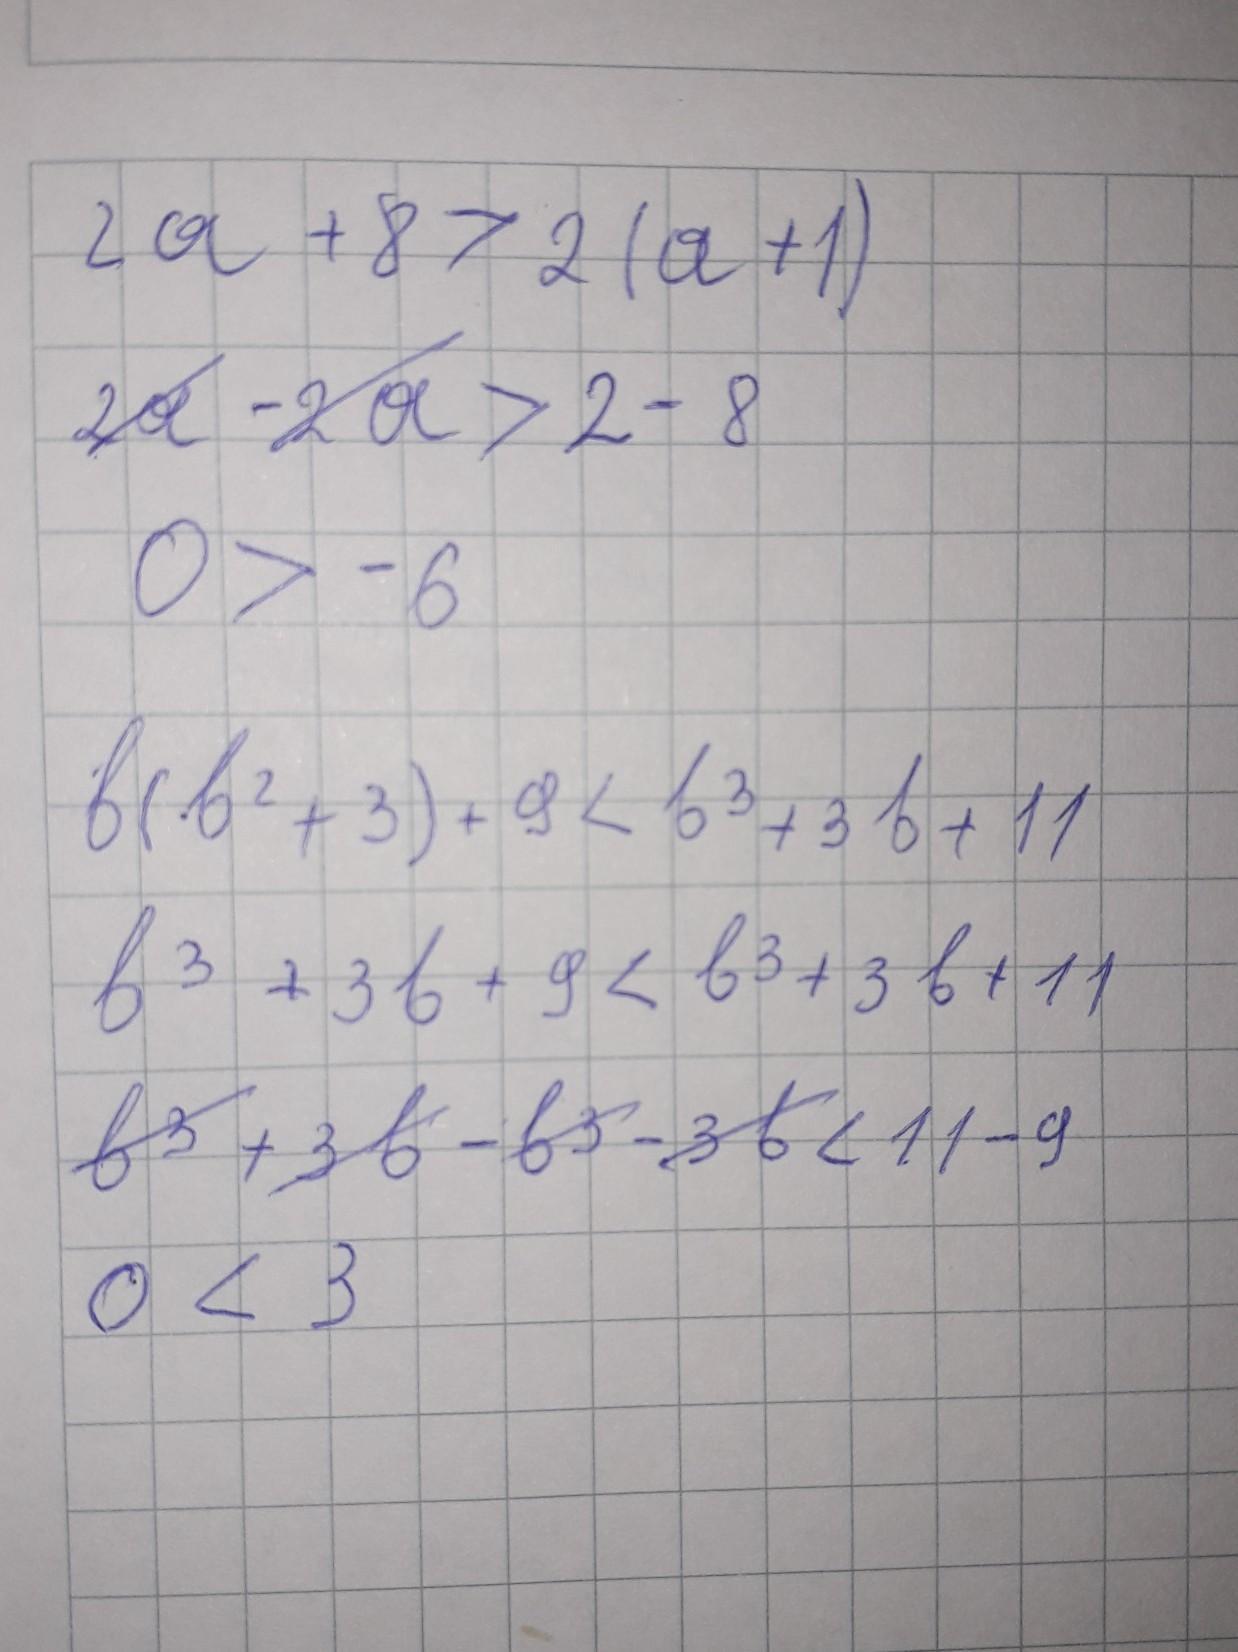 2a + 8 > 2(a + 1)
2a - 2a > 2 - 8
0 > -6
b(b² + 3) + 9 < b³ + 3b + 11
b³ + 3b + 9 < b³ + 3b + 11
b³ + 3b - b³ - 3b < 11 - 9
0 < 3